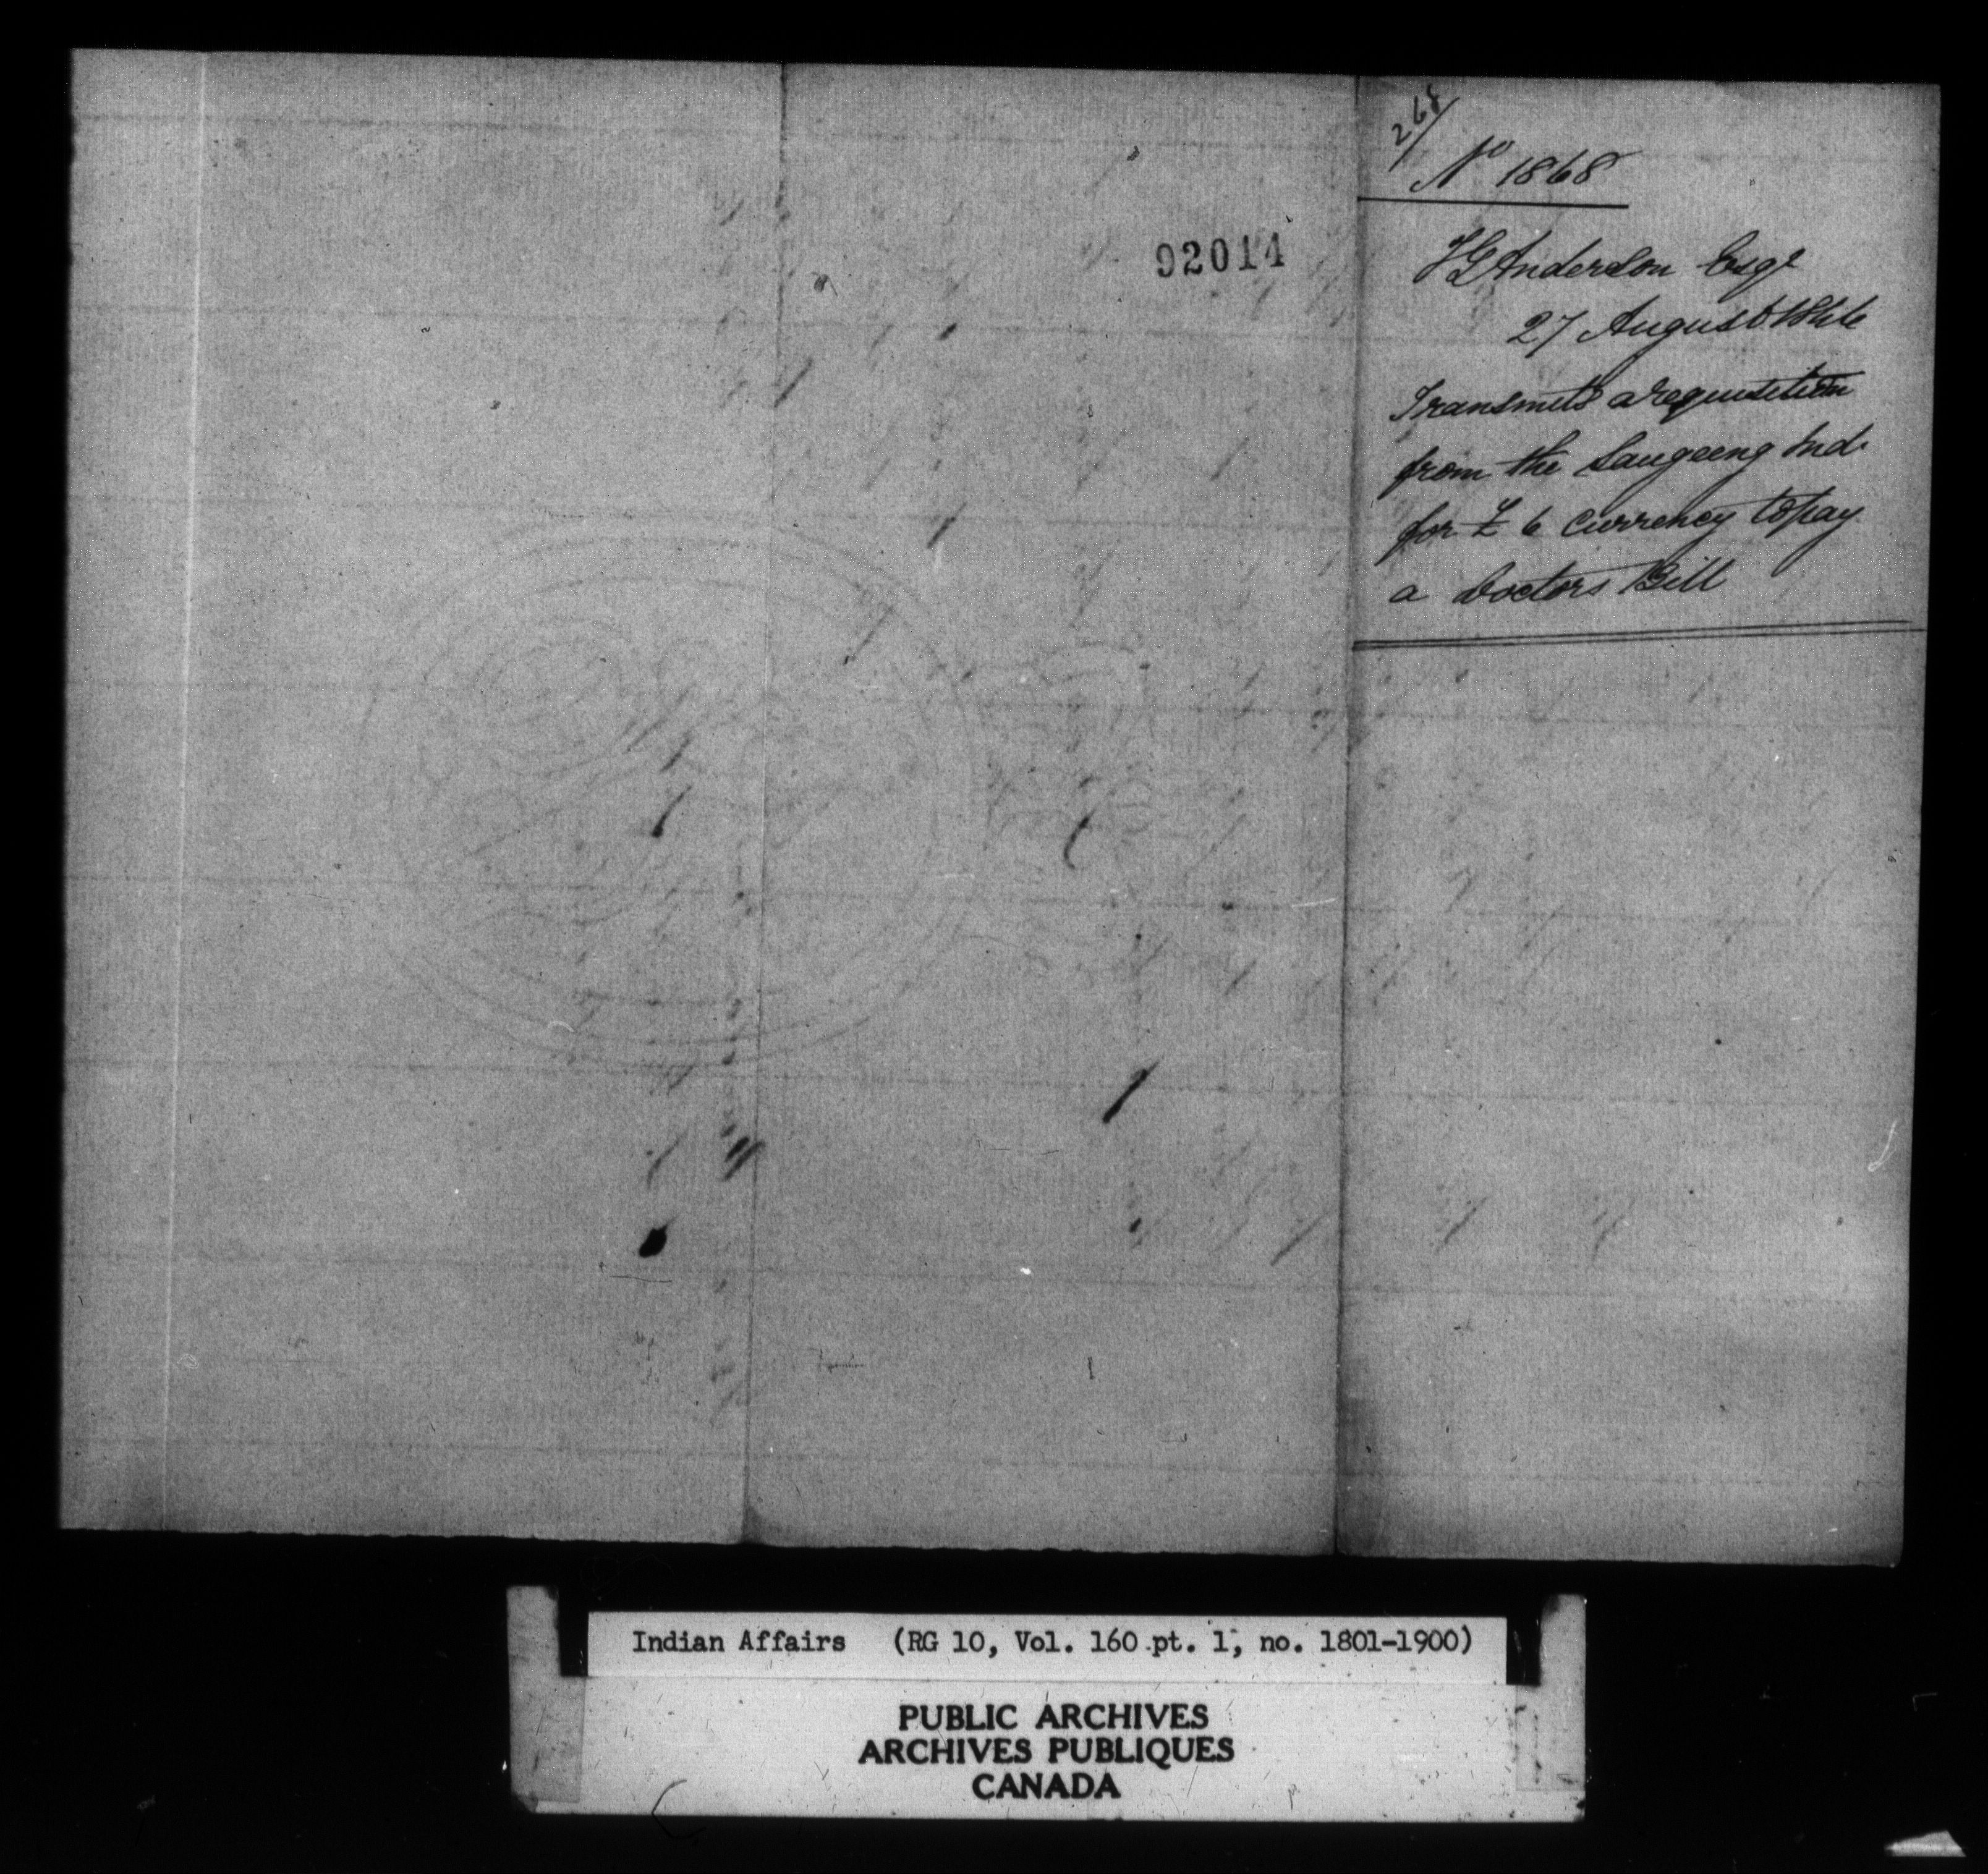 268/
Nº 1868
92014
TG Anderson Esqr
27 August 1846
Transmits a requisition
from the Saugeeng Ind.
for £ 6 currency to pay
a Doctors Bill
Indian Affairs (RG 10, Vol. 160 pt. 1, no. 1801-1900)
PUBLIC ARCHIVES
ARCHIVES PUBLIQUES
CANADA